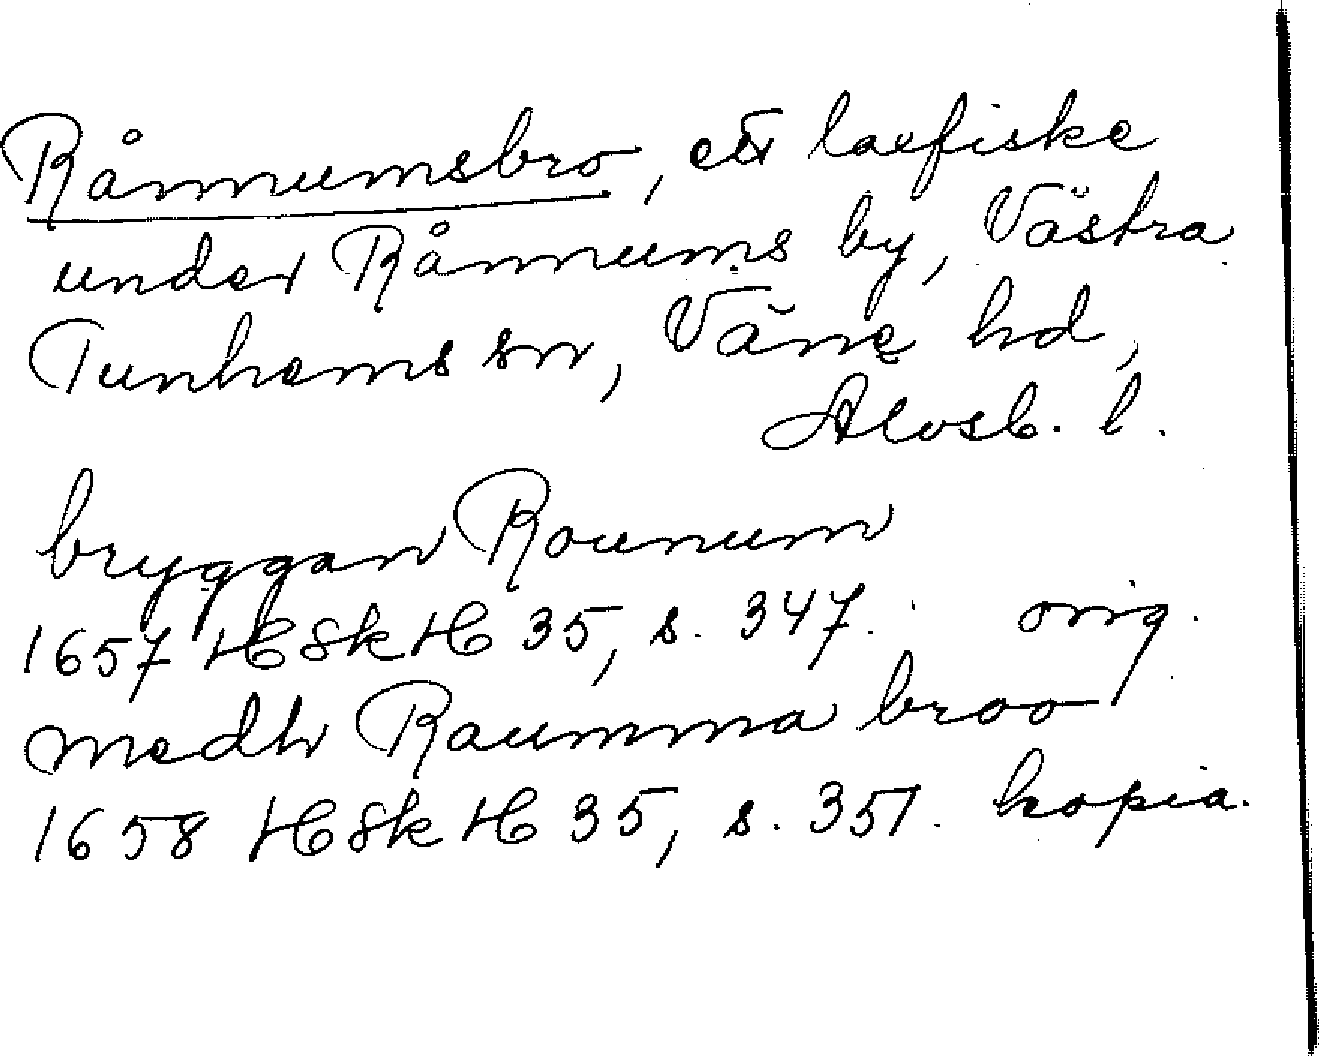 Rånnumsbro, ett laxfiske
under Rånnums by, Västra
Tunhems sn, Väne hd,
Älvsb. l.
bryggan Rounum
1657 HSkH 35, s. 347. orig.
medh Raumma broo
1658 HSkH 35, s. 351. kopia.